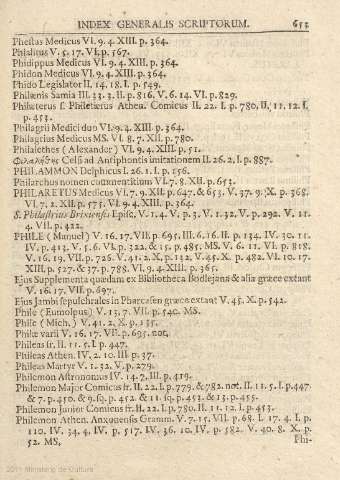 INDEX GENERALIS SCRIPTORUM. 653
Phestas Medicus VI. 9. 4. XIII. p. 364.
Phialitus V. 5. 17. VI. p. 567.
Phidippus Medicus VI. 9. 4. XIII. p. 364.
Phidon Medicus VI. 9. 4. XIII. p. 364.
Phido Legislator II. 14. 18. I. p. 549.
Philænis Samia III. 33. 3. II. p. 816. V. 6. 14. VI. p. 829.
Philæterus f. Philetærus Athea. Comicus II. 22. I. p. 780. II. 11. 12. I.
p. 453.
Philagrii Medici duo VI. 9. 4. XIII. p. 364.
Philagrius Medicus MS. VI. 8. 7. XII. p. 780.
Philalethes (Alexander) VI. 9. 4. XIII. p. 51.
Φιλαλήθης Celsi ad Antiphontis imitationem II. 26. 2. I. p. 887.
PHILAMMON Delphicus I. 26. 1. I. p. 156.
Philarchus nomen commentitium VI. 7. 8. XII. p. 653.
PHILARETUS Medicus VI. 7. 9. XII. p. 647. & 653. V. 37. 9. X. p. 368.
VI. 7. 2. XII. p. 575. VI. 9. 4. XIII. p. 364.
S. Philastrius Brixiensis Episc. V. 1. 4. V. p. 3. V. 1. 32. V. p. 292. V. 11.
4. VII. p. 422.
PHILE (Manuel) V. 16. 17. VII. p. 695. III. 6. 16. II. p. 134. IV. 30. 11.
IV. p. 413. V. 5. 6. VI. p. 322. & 15. p. 485. MS. V. 6. 11. VI. p. 818.
V. 16. 19. VII. p. 726. V. 41. 2. X. p. 132. V. 45. X. p. 482. VI. 10. 17.
XIII. p. 527. & 37. p. 785. VI. 9. 4. XIII. p. 365.
Ejus Supplementa quædam ex Bibliotheca Bodlejana & alia græce extant
V. 16. 17. VII. p. 697.
Ejus Jambi sepulchrales in Phacrasen græce extant V. 45. X. p. 542.
Phile (Eumolpus) V. 15. 7. VII. p. 540. MS.
Phile (Mich.) V. 41. 2. X. p. 135.
Philæ varii V. 16. 17. VII. p. 695. not.
Phileas fr. II. 11. 5. I. p. 447.
Phileas Athen. IV. 2. 10. III. p. 37.
Phileas Martyr V. 1. 32. V. p. 279.
Philemon Astronomus IV. 14. 7. III. p. 419.
Philemon Major Comicus fr. II. 22. I. p. 779. & 782. not. II. 11. 5. I. p. 447.
& 7. p. 450. & 9. sq. p. 452. & 11. sq. p. 453. & 13. p. 455.
Philemon Junior Comicus fr. II. 22. I. p. 780. II. 11. 12. I. p. 453.
Philemon Athen. Anxonensis Gramm. V. 7. 15. VII. p. 68. I. 17. 4. I. p.
110. IV. 34. 4. IV. p. 517. IV. 36. 10. IV. p. 582. V. 40. 8. X. p.
52. MS,
Phi-
2011 Ministerio de Cultura